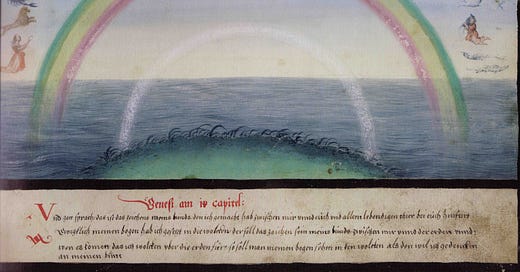 Genesi am ix capitel:
Und got sprach das ist das zeichens meins bunds den ich gemacht hab zwischen mir unnd euch und allem lebendigen thier bei euch hinfurt
Ewigklich meinen bogen hab ich gesetzt in die wolcken der soll das zaichen sein meins bunds zwischen mir unnd der erden unnd
wen es komen das ich wolcken uber die erden fier so soll man meinen bogen sehen in den wolcken als den wil ich gedencken
an meinen bunt